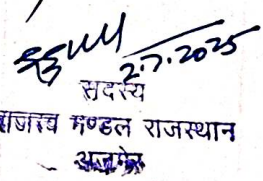 2.7.2025
सदस्य
राजस्व मण्डल राजस्थान
अजमेर